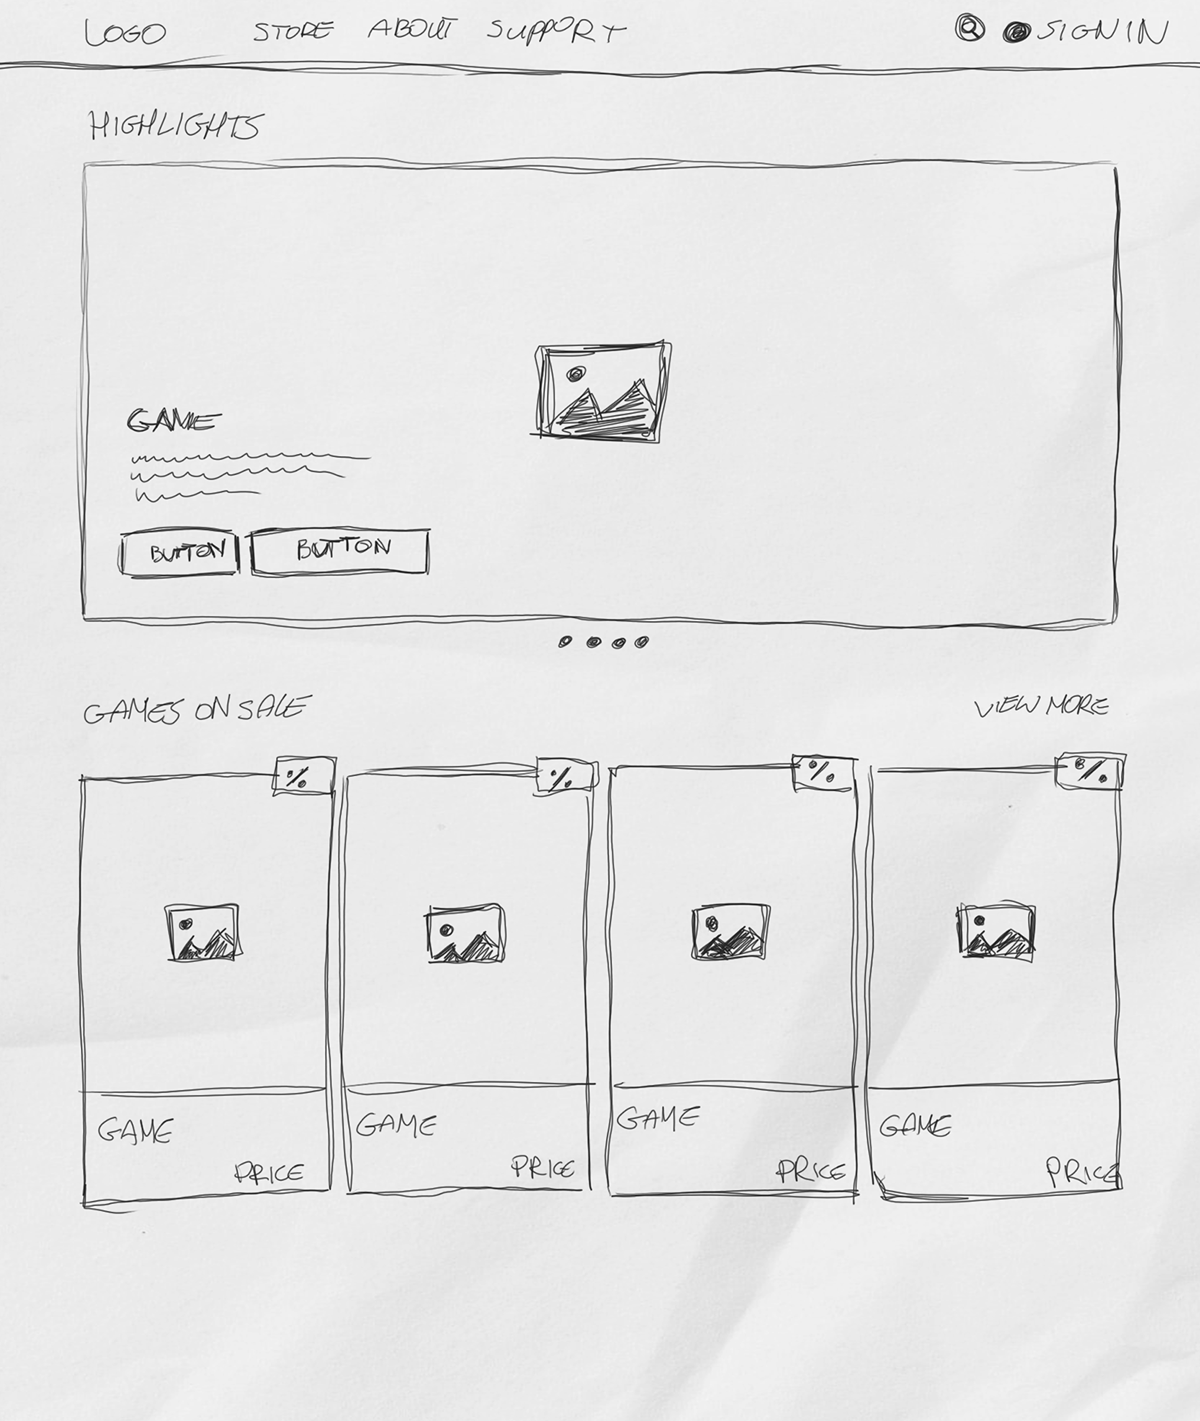 LOGO STORE ABOUT SUPPORT SIGN IN
HIGHLIGHTS
GAME
BUTTON BUTTON
GAMES ON SALE VIEW MORE
% % % %
GAME GAME GAME GAME
PRICE PRICE PRICE PRICE